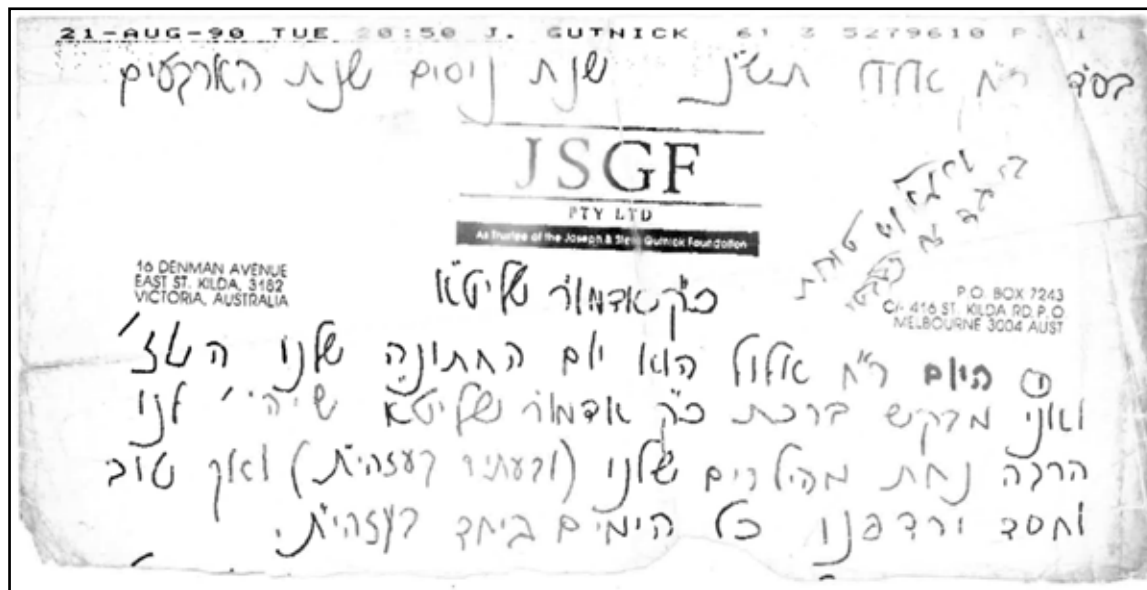 21-AUG-90 TUE 20:50 J. GUTNICK 61 3 5279610 P.01
בס"ד ר"ח אלול תש"נ שנת ניסים שנת הארבעים
JSGF
PTY LTD
As Trustee of the Joseph & Stera Gutnick Foundation
16 DENMAN AVENUE
EAST ST. KILDA, 3182
VICTORIA, AUSTRALIA
P.O. BOX 7243
C/- 416 ST. KILDA RD. P.O.
MELBOURNE 3004 AUST
כ"ק אדמו"ר שליט"א
① היום ר"ח אלול הוא יום החתונה שלנו
ואני מבקש ברכת כ"ק אדמו"ר שליט"א שיהי' לנו
הרבה נחת מהילדים שלנו (ובעתיד בעזהי"ת) ואך טוב
וחסד ירדפנו כל הימים ביחד בעזהי"ת.